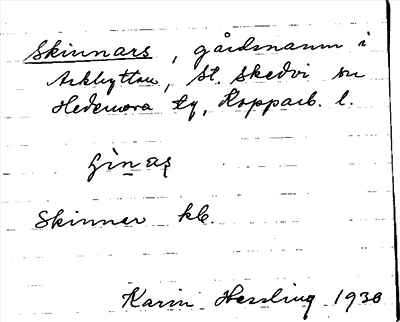 Skinnars, gårdsnamn i
Arkhyttan, St. Skedvi sn
Hedemora tg, Kopparb. l.
Skinnar kb.
Karin Hessling 1930